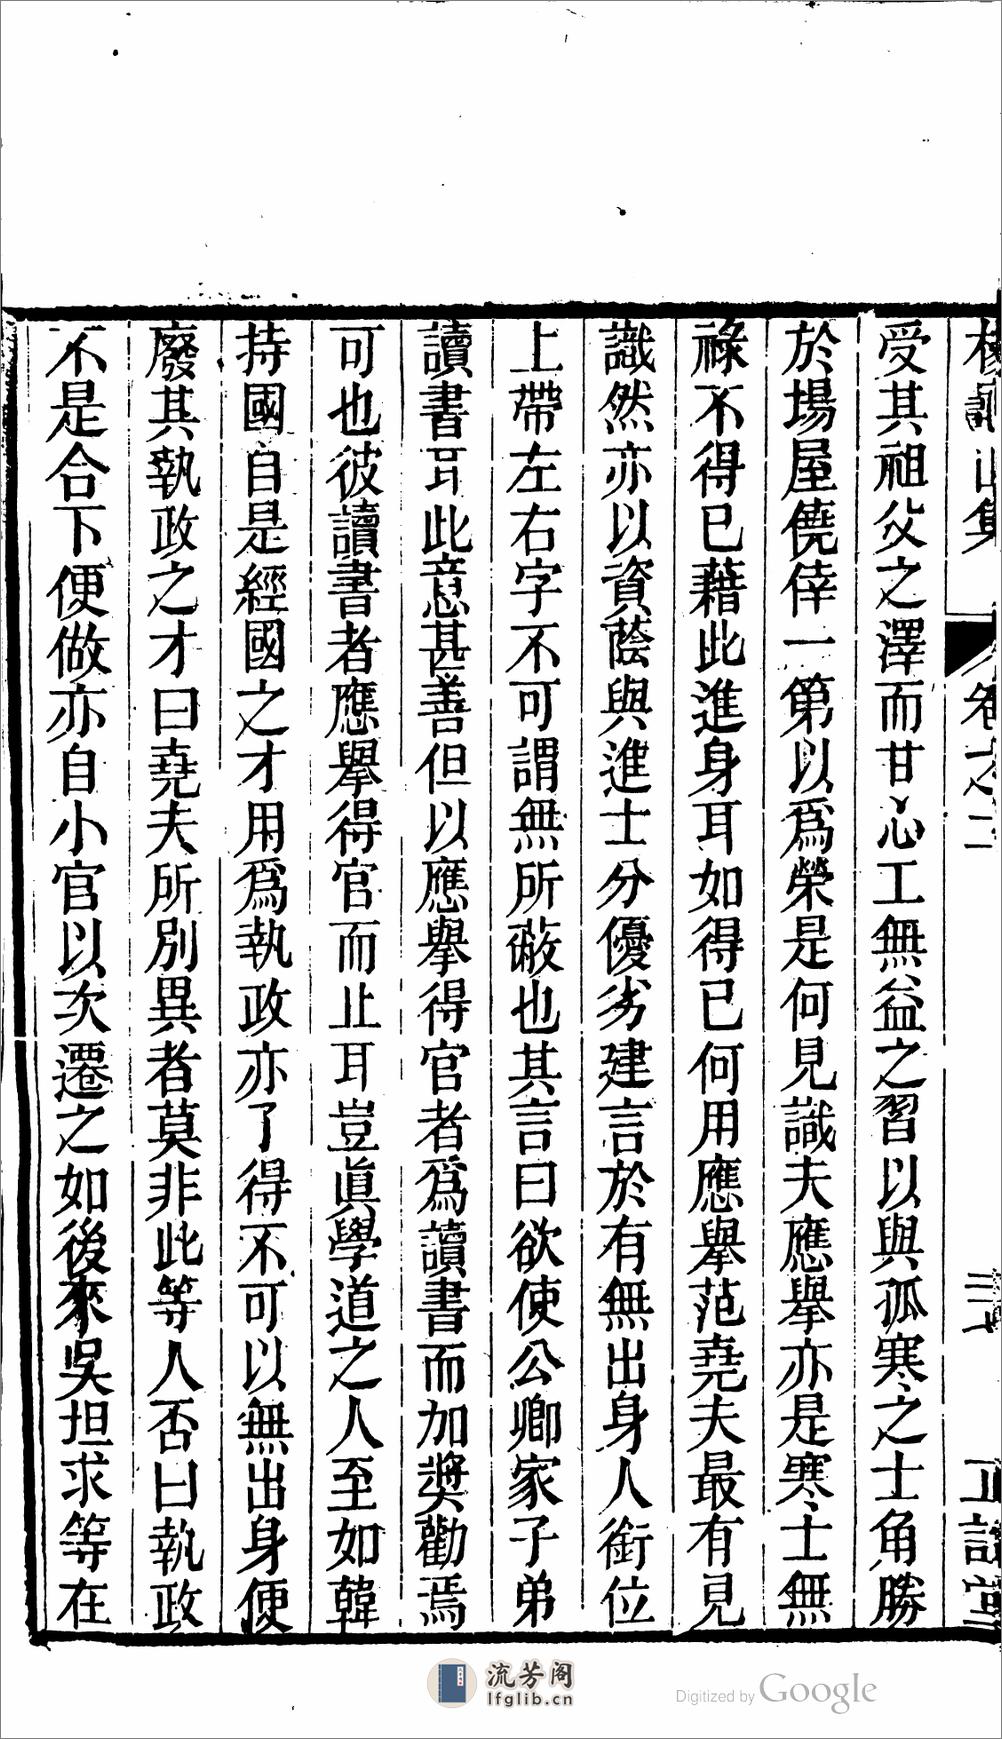 楊龜山集 卷之二 三 正誼堂
受其祖父之澤而甘心工無益之習以與孤寒之士角勝
於場屋僥倖一第以爲榮是何見識夫應舉亦是寒士無
祿不得已藉此進身耳如得已何用應舉范堯夫最有見
識然亦以資蔭與進士分優劣建言於有無出身人銜位
上帶左右字不可謂無所蔽也其言曰欲使公卿家子弟
讀書耳此意甚善但以應舉得官者爲讀書而加獎勸焉
可也彼讀書者應舉得官而止耳豈眞學道之人至如韓
持國自是經國之才用爲執政亦了得不可以無出身便
廢其執政之才曰堯夫所別異者莫非此等人否曰執政
不是合下便做亦自小官以次遷之如後來吳坦求等在
流芳阁
lfglib.cn
Digitized by Google